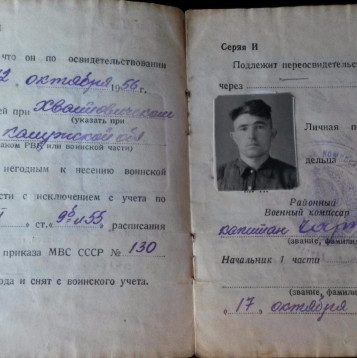 что он по освидетельствовании
октября 1956 г.
ей при Хвастовичском
(указать при
Калужской обл
аком РВК или воинской части)
негодным к несению воинской
сти с исключением с учета по
ст. 9б и 55, расписания
приказа МВС СССР № 130
ода и снят с воинского учета.
Серия И
Подлежит переосвидетельств
через
Личная п
дельца
Районный
Военный комиссар
капитан
(звание, фамилия
Начальник 1 части
(звание, фамили
«17» октября